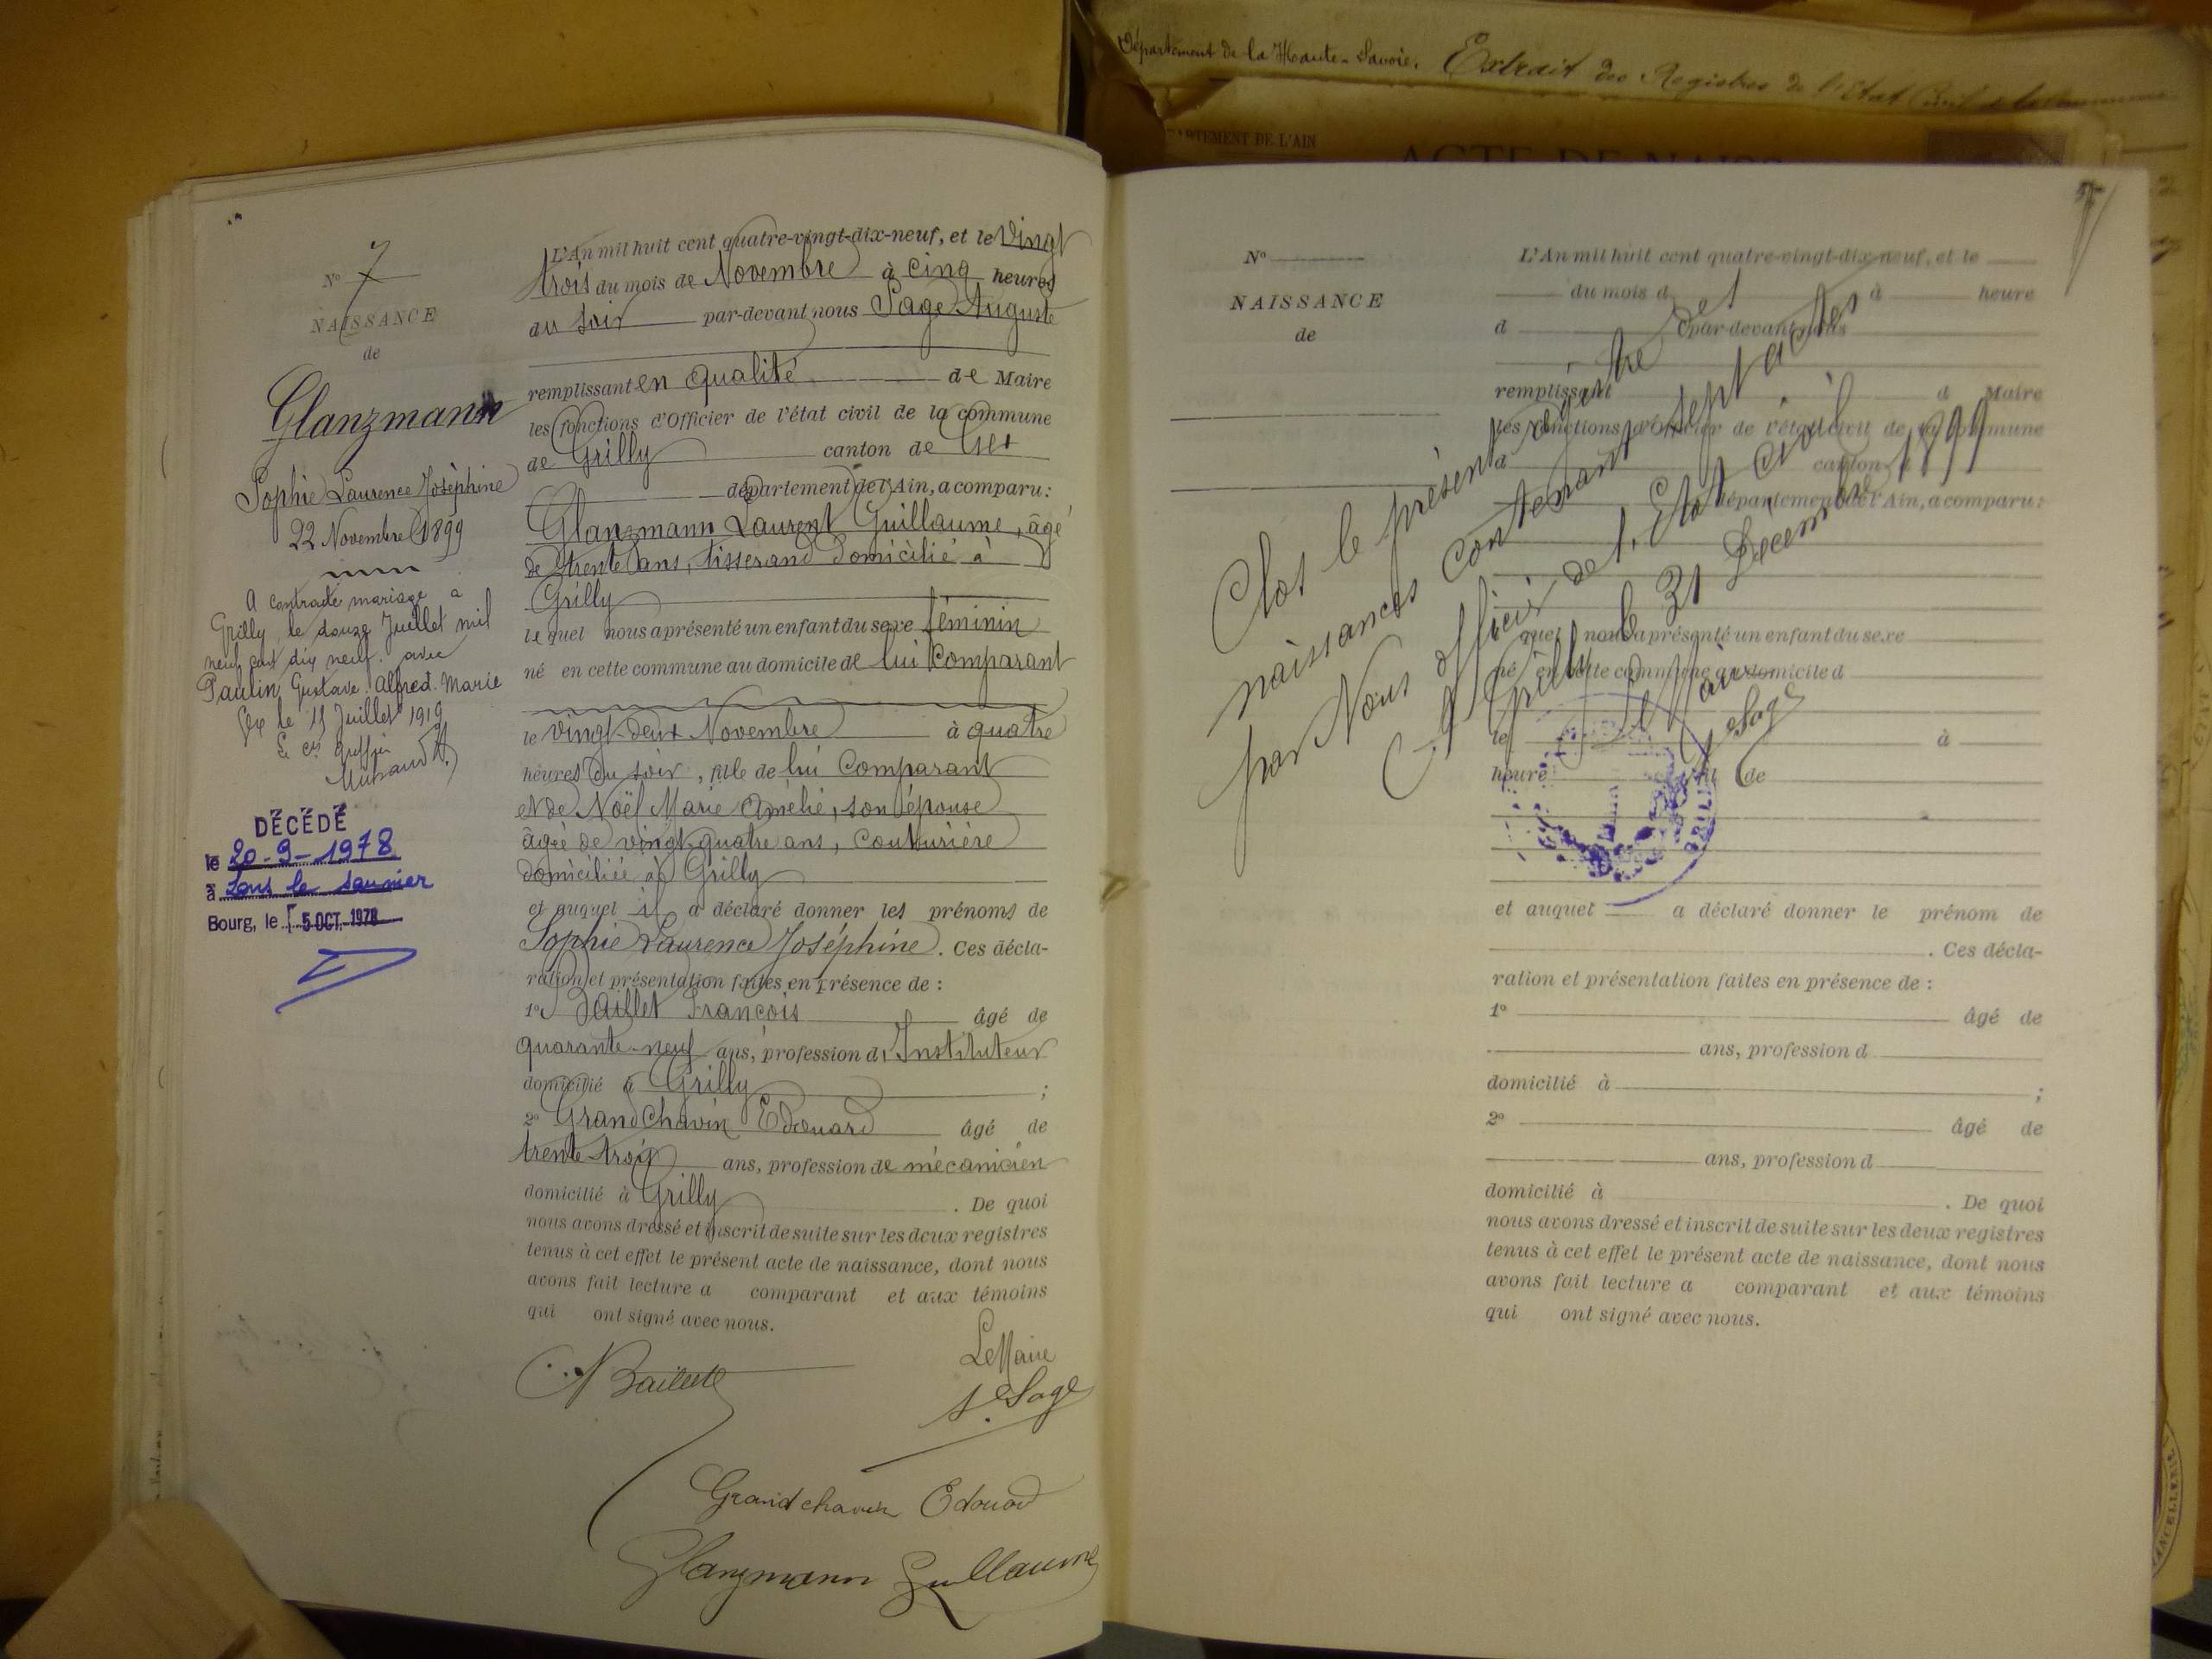 Département de la Haute-Savoie. Extrait des Registres de l'Etat Civil de la Commune
DÉPARTEMENT DE L'AIN
ACTE DE NAISS
N° 7
NAISSANCE
de
Glanzmann
Sophie Laurence Joséphine
22 Novembre 1899
A contracté mariage a
Grilly, le douze Juillet mil
neuf cent dix neuf. avec
Paulin, Gustave. Alfred. Marie
Gex le 15 Juillet 1919
DÉCÉDÉ
le 20-9-1978
à Lons le Saunier
Bourg, le 5 OCT. 1978
L'An mil huit cent quatre-vingt-dix-neuf, et le Vingt
trois du mois de Novembre à cinq heures
du soir par-devant nous Sage Auguste
remplissant en qualité de Maire
les fonctions d'Officier de l'état civil de la commune
de Grilly canton de Gex
département de l'Ain, a comparu:
Glanzmann Laurent Guillaume, âgé
de trente ans, tisserand domicilié à
Grilly
lequel nous a présenté un enfant du sexe féminin
né en cette commune au domicile de lui comparant
le vingt-deux Novembre à quatre
heures du soir, fille de lui Comparant
et de Noël Marie Amélie, son épouse
âgée de vingt-quatre ans, couturière
domiciliée à Grilly
et auquel il a déclaré donner les prénoms de
Sophie Laurence Joséphine. Ces décla-
ration et présentation faites en présence de :
1° Baillet François âgé de
quarante-neuf ans, profession d'Instituteur
domicilié à Grilly ;
2° Grandchavin Edouard âgé de
trente-trois ans, profession de mécanicien
domicilié à Grilly . De quoi
nous avons dressé et inscrit de suite sur les deux registres
tenus à cet effet le présent acte de naissance, dont nous
avons fait lecture a comparant et aux témoins
qui ont signé avec nous.
Le Maire
Sage
Grandchavin Edouard
Glanzmann Guillaume
N°
NAISSANCE
de
L'An mil huit cent quatre-vingt-dix-neuf, et le
du mois d à heure
d par-devant nous
remplissant d Maire
les fonctions d'Officier de l'état civil de la commune
d canton d
département de l'Ain, a comparu:
quel nous a présenté un enfant du sexe
né en cette commune au domicile d
le à
heure fil de
et auquel a déclaré donner le prénom de
. Ces décla-
ration et présentation faites en présence de :
1° âgé de
ans, profession d
domicilié à ;
2° âgé de
ans, profession d
domicilié à . De quoi
nous avons dressé et inscrit de suite sur les deux registres
tenus à cet effet le présent acte de naissance, dont nous
avons fait lecture a comparant et aux témoins
qui ont signé avec nous.
Clos le présent registre des
naissances contenant sept actes
par Nous officier de l'Etat civil
A Grilly le 31 Décembre 1899
Le Maire
Sage